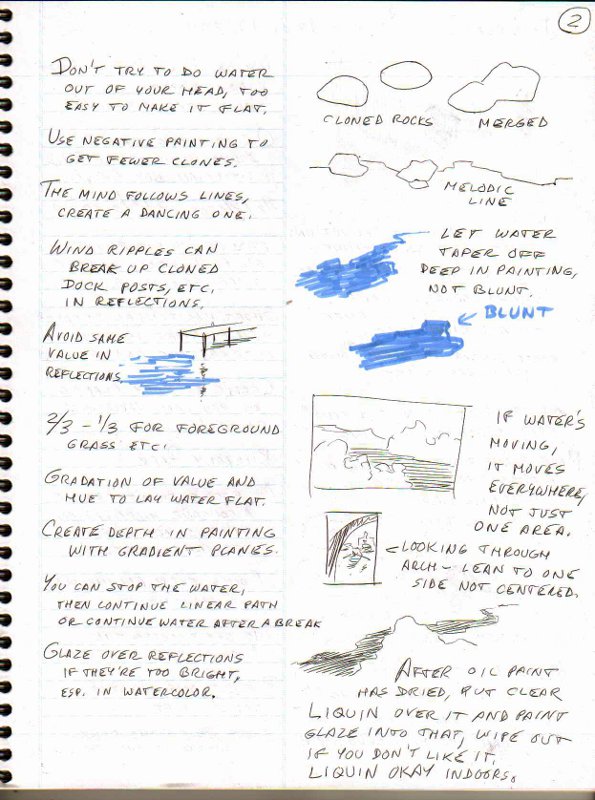 2
DON'T TRY TO DO WATER
OUT OF YOUR HEAD, TOO
EASY TO MAKE IT FLAT.
USE NEGATIVE PAINTING TO
GET FEWER CLONES.
THE MIND FOLLOWS LINES,
CREATE A DANCING ONE.
WIND RIPPLES CAN
BREAK UP CLONED
DOCK POSTS, ETC.
IN REFLECTIONS.
AVOID SAME
VALUE IN
REFLECTIONS.
2/3 - 1/3 FOR FOREGROUND
GRASS ETC.
GRADATION OF VALUE AND
HUE TO LAY WATER FLAT.
CREATE DEPTH IN PAINTING
WITH GRADIENT PLANES.
YOU CAN STOP THE WATER,
THEN CONTINUE LINEAR PATH
OR CONTINUE WATER AFTER A BREAK
GLAZE OVER REFLECTIONS
IF THEY'RE TOO BRIGHT,
ESP. IN WATERCOLOR.
CLONED ROCKS
MERGED
MELODIC
LINE
LET WATER
TAPER OFF
DEEP IN PAINTING,
NOT BLUNT.
BLUNT
IF WATER'S
MOVING,
IT MOVES
EVERYWHERE,
NOT JUST
ONE AREA.
LOOKING THROUGH
ARCH - LEAN TO ONE
SIDE NOT CENTERED.
AFTER OIL PAINT
HAS DRIED, PUT CLEAR
LIQUIN OVER IT AND PAINT
GLAZE INTO THAT, WIPE OUT
IF YOU DON'T LIKE IT.
LIQUIN OKAY INDOORS.